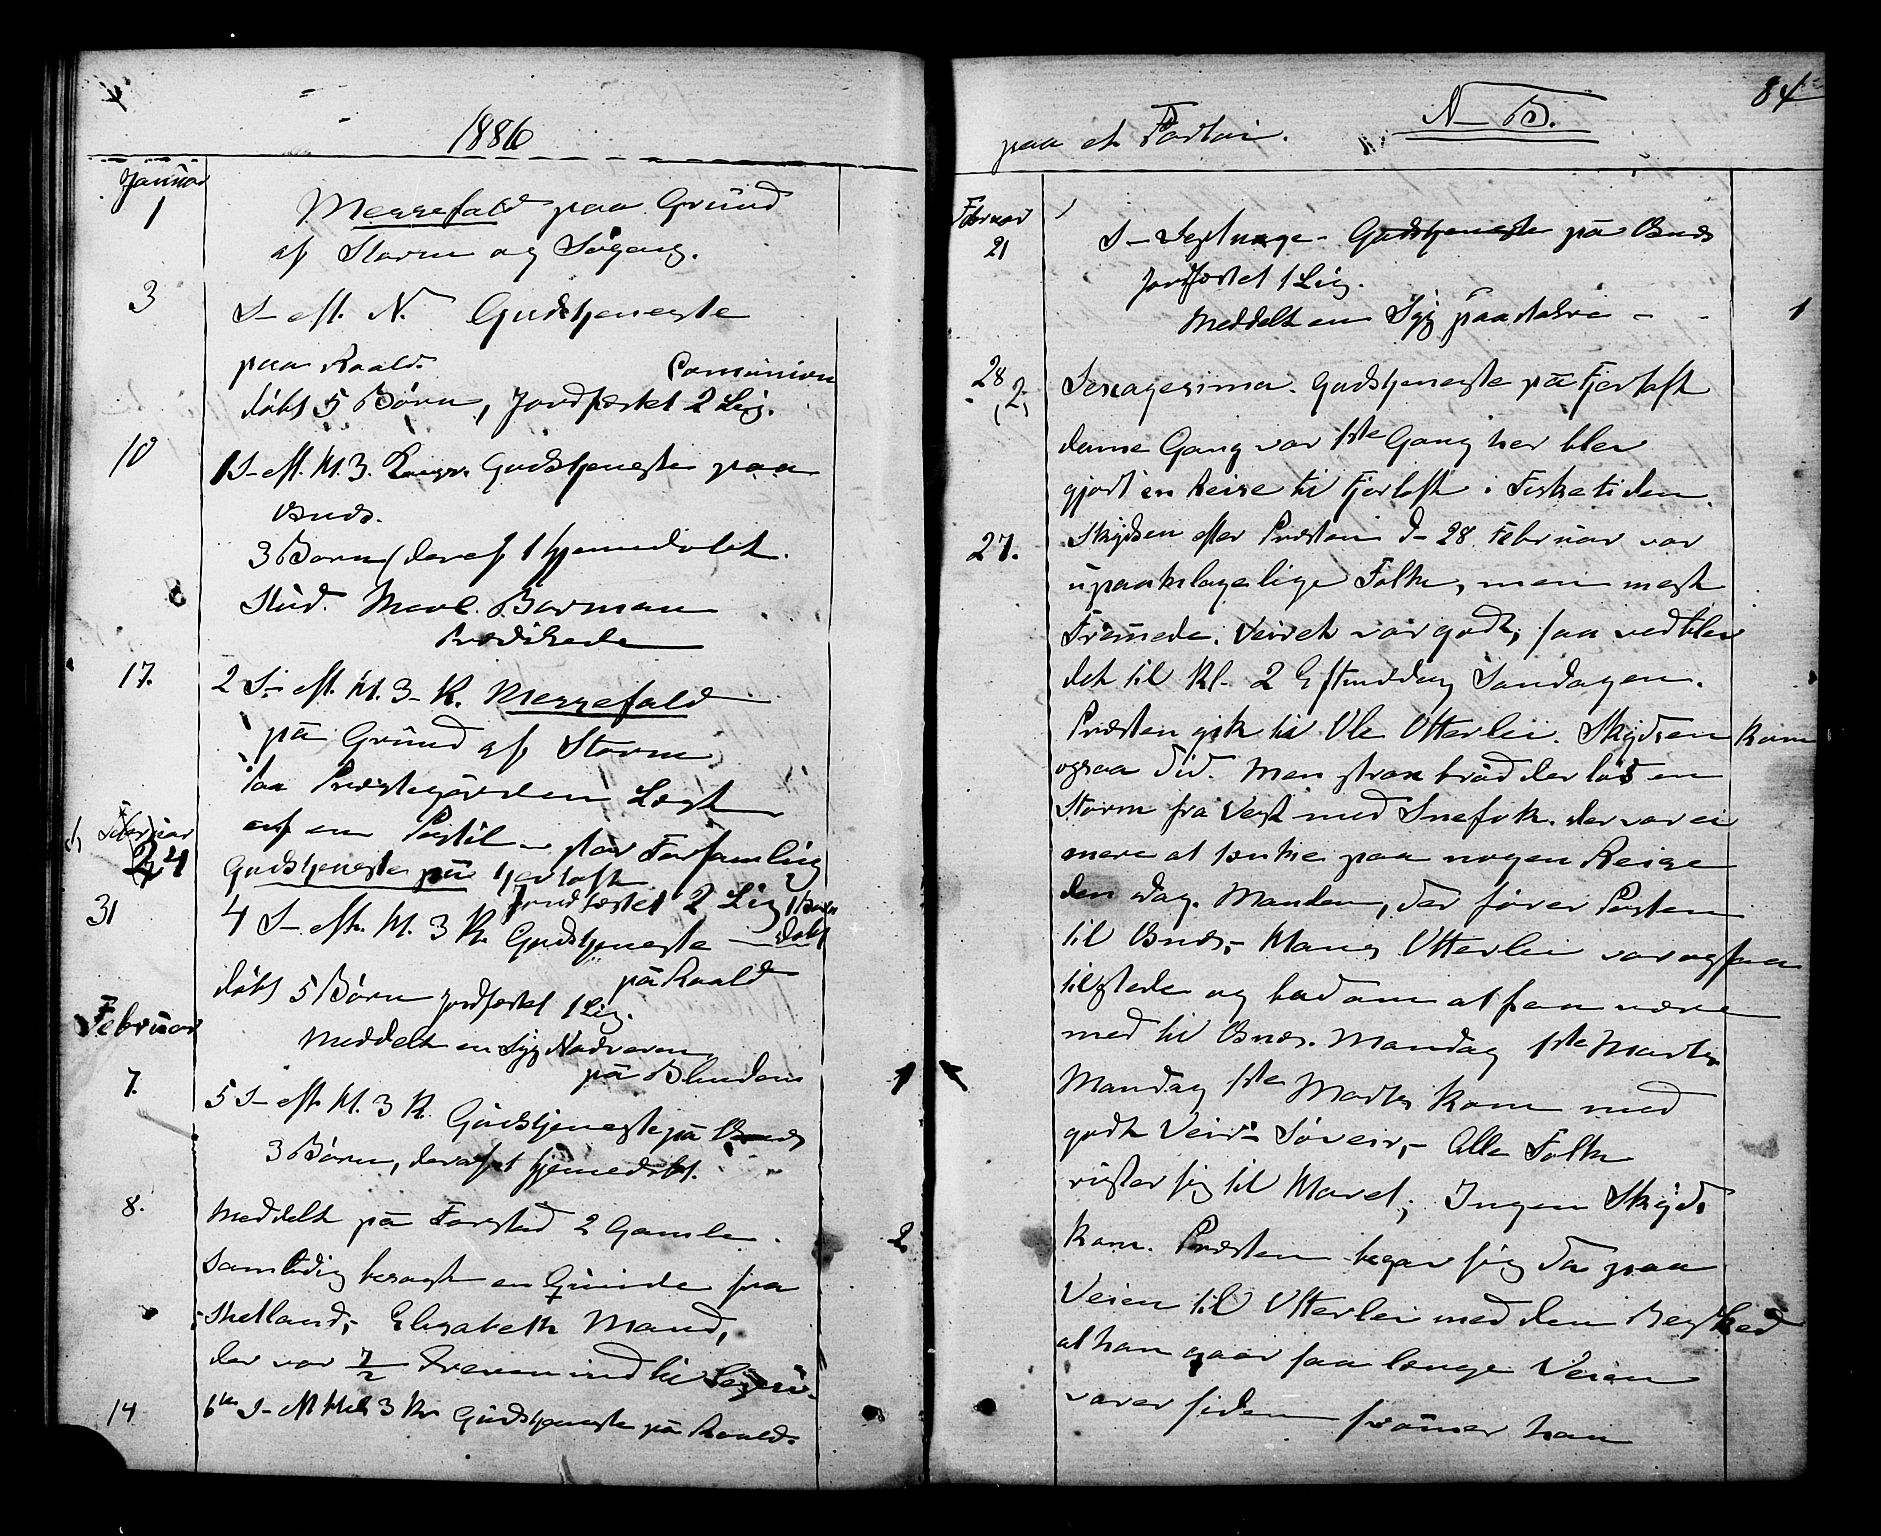 1886
Januar
1
Messefald paa Grund
af Storm og Søgang.
3
S- eft. N. Gudstjeneste
paa Roald. Comunion
døbt 5 Børn, Jordfæstet 2 Lig.
10
1 S- eft. H. 3. Gudstjeneste paa
Onæs.
3 Børn (deraf 1 hjemmedøbt.
Stud. Borman
Prædikede
17.
2 S- eft. H. 3- K. Messefald
på Grund af Storm
Paa Præstegården Læst
af en Postil - stor Forsamling
Februar
24
Gudstjeneste på Fjertoft
Jordfæstet 2 Lig 1 Barn
døbt
31
4 S- eft. H. 3 K. Gudstjeneste
på Roald
døbt 5 Børn Jordfæstet 1 Lig.
Meddelt en Syg Nadveren
på Blindem
1
Februar
7.
5 S- eft. H. 3 K. Gudstjeneste på Onæs
3 Børn, deraf 1 hjemedøbt.
8.
Meddelt på Farstad 2 Gamle.
2
Samtidig besøgt en Qvinde fra
Shetland,- Elisabeth
der var 7/2 dreven ind til
14
6te S- eft Hel 3 K. Gudstjeneste på Roald.
84
N B.
paa et Fartøi.
Februar
21
S- Septuage- Gudstjeneste på Onæs
Jordfæstet 1 Lig.
Meddelt en Syg paa
1
28
2
Sexagesima. Gudstjeneste på Fjertoft
denne Gang var 1ste Gang her blev
gjort en Reise til Fjertoft i Fisketiden.
27.
Skydsen efter Præsten d- 28 Februar var
upaaklagelige Folk, men mest
Fremede. Veiret var godt, saa vedblev
det til Kl- 2 Eftmiddag Søndagen.
Præsten gik til Ole Otterlei. Skydsen kom
ogsaa did. Men strax brød der løs en
Storm fra Vest med Snefok. der var ei
mere at tænke paa nogen Reise
den Dag. Manden, der fører Posten
til Onæs,- Hans Otterlei var ogsaa
tilstede og bad om at faa være
med til Onæs. Mandag 1ste Marts.
Mandag 1ste Marts kom med
godt Veir- Søveir,- Alle Folk
ruster sig til Havet; Ingen Skyds
kom. Præsten begav sig da paa
Veien til Otterlei med den Besked
at han gaar saa længe Veien
varer siden svømmer han